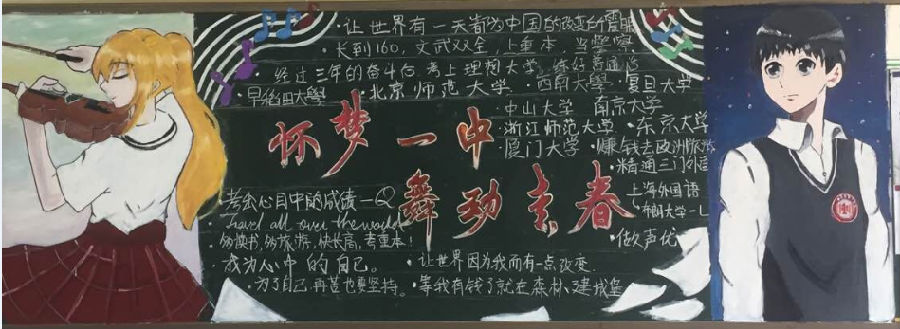 ·让世界有一天都为中国的改变而震
·长到160,文武双全,上重本
·经过三年的奋斗后,考上理想大学,练好普通
·早稻田大學 ·北京师范大学 ·西南大學 ·复旦大学
·中山大学 南京大学
怀梦一中
·浙江师范大学 ·东京大学
·厦门大学 ·赚钱去欧洲旅游
·精通三门外语
舞动青春
考出心目中的成绩—Q
上海外国语
travel all over the world
东朗大学—L
多读书,多旅游,快长高,考重本!
·做声优
·成为心中的自己。
·让世界因为我而有一点改变.
·为了自己,再苦也要坚持。
·等我有钱了就在森林建城堡